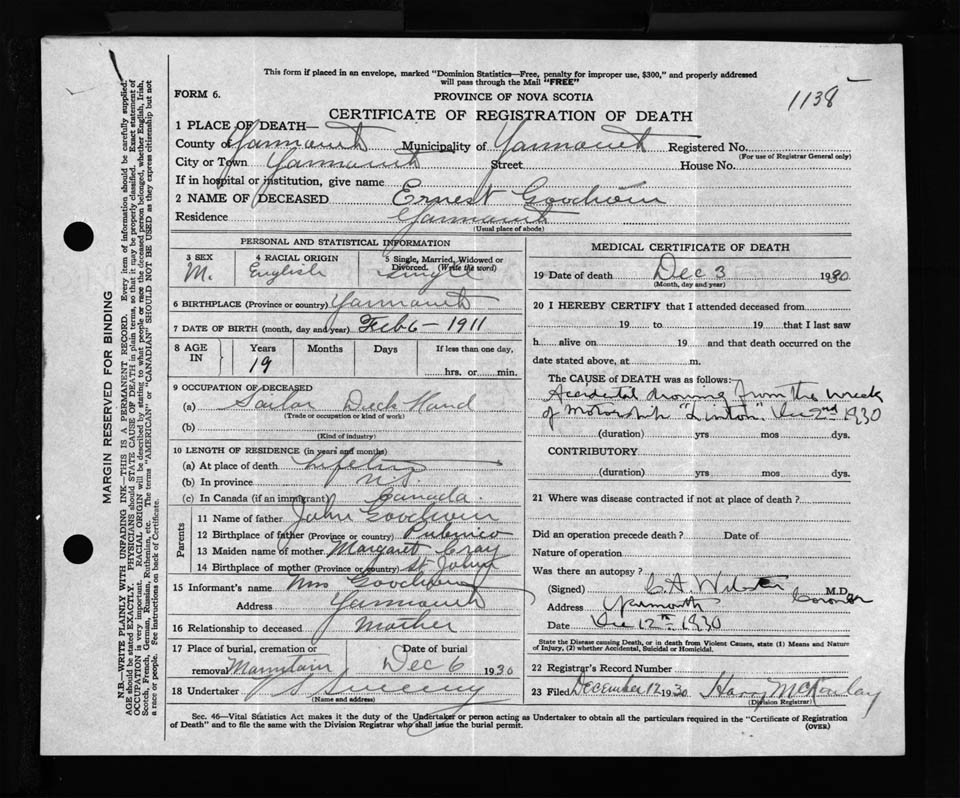 This form if placed in an envelope, marked "Dominion Statistics—Free, penalty for improper use, $300," and properly addressed
will pass through the Mail "FREE"
FORM 6.
PROVINCE OF NOVA SCOTIA
1138
CERTIFICATE OF REGISTRATION OF DEATH
1 PLACE OF DEATH—
County of Yarmouth Municipality of Yarmouth Registered No.
(For use of Registrar General only)
City or Town Yarmouth Street House No.
If in hospital or institution, give name
2 NAME OF DECEASED Ernest Goodwin
Residence Yarmouth
(Usual place of abode)
PERSONAL AND STATISTICAL INFORMATION
3 SEX M.
4 RACIAL ORIGIN English
5 Single, Married, Widowed or Divorced. (Write the word) Single
6 BIRTHPLACE (Province or country) Yarmouth
7 DATE OF BIRTH (month, day and year) Feb 6 - 1911
8 AGE IN
Years Months Days If less than one day,
19 hrs. or min.
9 OCCUPATION OF DECEASED
(a) Sailor Deck Hand
(Trade or occupation or kind of work)
(b)
(Kind of industry)
10 LENGTH OF RESIDENCE (in years and months)
(a) At place of death
(b) In province N.S.
(c) In Canada (if an immigrant) Canada.
Parents
11 Name of father John Goodwin
12 Birthplace of father (Province or country) Pubnico
13 Maiden name of mother Margaret
14 Birthplace of mother (Province or country) St John
15 Informant's name Mrs Goodwin
Address Yarmouth
16 Relationship to deceased Mother
17 Place of burial, cremation or Date of burial
removal Mountain Dec 6 1930
18 Undertaker Sweeny
(Name and address)
MEDICAL CERTIFICATE OF DEATH
19 Date of death Dec 3 1930
(Month, day and year)
20 I HEREBY CERTIFY that I attended deceased from
19 to 19 that I last saw
h alive on 19 and that death occurred on the
date stated above, at m.
The CAUSE OF DEATH was as follows:
Accidental drowning from the wreck
of Motorship "Linton". Dec 2nd 1930
(duration) yrs mos dys.
CONTRIBUTORY
(duration) yrs. mos. dys.
21 Where was disease contracted if not at place of death?
Did an operation precede death? Date of
Nature of operation
Was there an autopsy?
(Signed) C. A. Webster M.D.
Coroner
Address Yarmouth
Date Dec 12th 1930
State the Disease causing Death, or in death from Violent Causes, state (1) Means and Nature
of Injury, (2) whether Accidental, Suicidal or Homicidal.
22 Registrar's Record Number
23 Filed December 12 1930 Harry McKinlay
(Division Registrar)
Sec. 46—Vital Statistics Act makes it the duty of the Undertaker or person acting as Undertaker to obtain all the particulars required in the "Certificate of Registration
of Death" and to file the same with the Division Registrar who shall issue the burial permit.
(OVER)
MARGIN RESERVED FOR BINDING
N.B.—WRITE PLAINLY WITH UNFADING INK—THIS IS A PERMANENT RECORD. Every item of information should be carefully supplied.
AGE should be stated EXACTLY. PHYSICIANS should STATE CAUSE OF DEATH in plain terms, so that it may be properly classified. Exact statement of
OCCUPATION is very important. RACIAL ORIGIN will be described by stating to what people or race the deceased person belonged, whether English, Irish,
Scotch, French, German, Russian, Ruthenian, etc. The terms "AMERICAN" or "CANADIAN" SHOULD NOT BE USED as they express citizenship but not
a race or people. See instructions on back of Certificate.